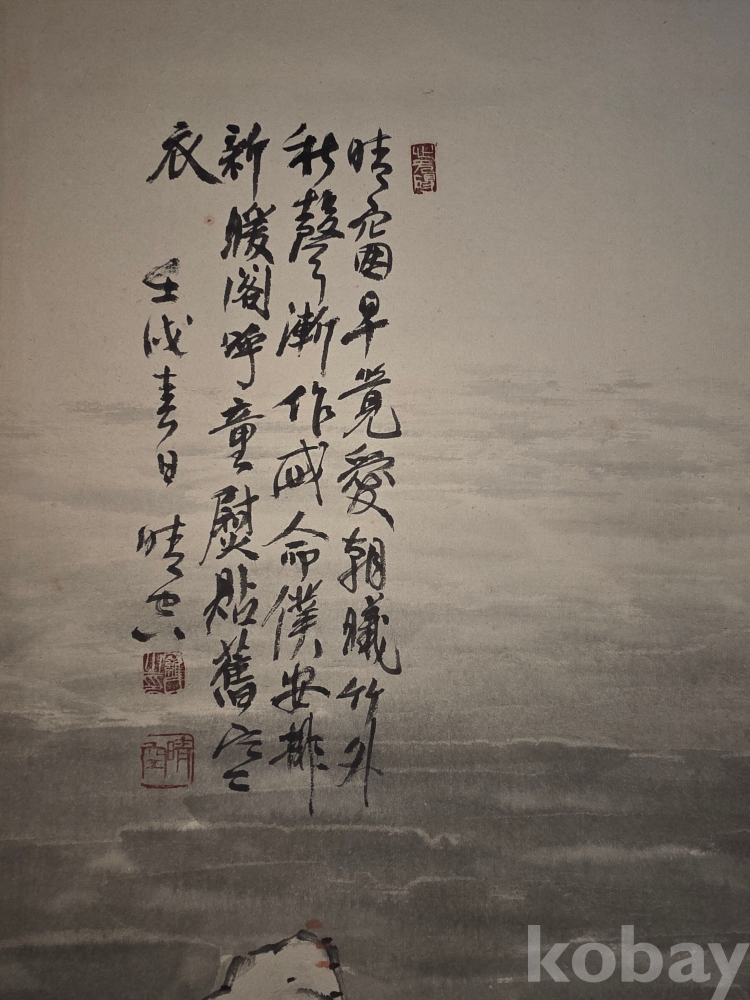 晴窗早覺愛朝曦竹外
秋聲漸作威命僕安排
新暖閣呼童熨貼舊寒
衣
壬戌春日 晴空
晴空
kobay